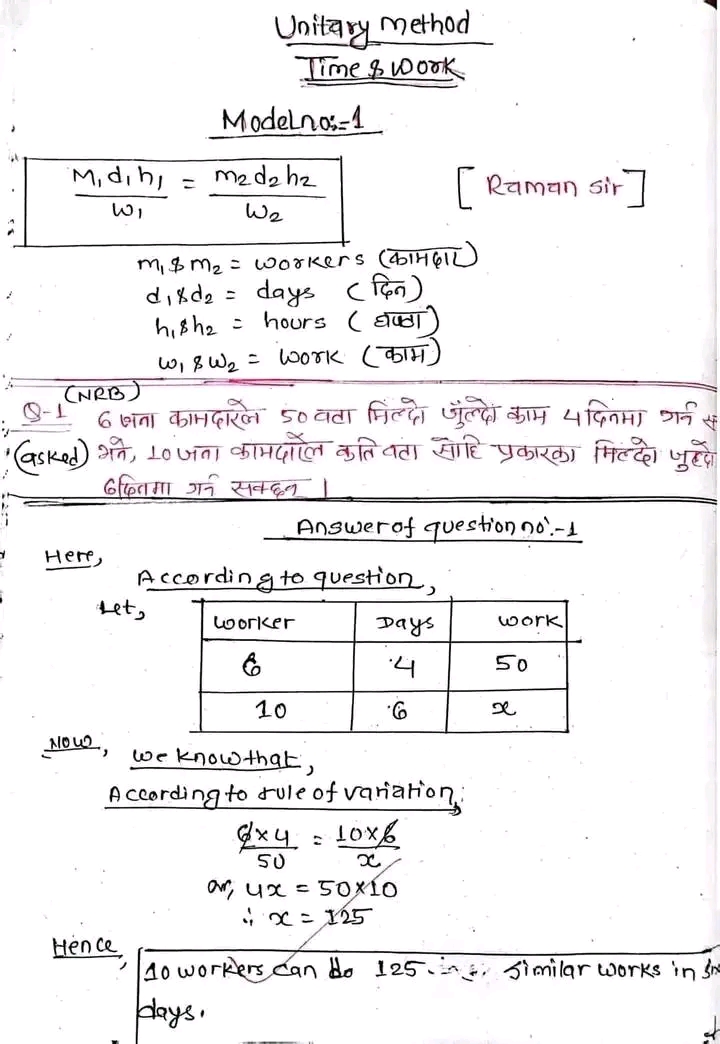 Unitary method
Time & Work
Model no:-1
M₁d₁h₁/W₁ = m₂d₂h₂/W₂
[Raman sir]
m₁ & m₂ = workers (कामदार)
d₁ & d₂ = days (दिन)
h₁ & h₂ = hours (घण्टा)
w₁ & w₂ = work (काम)
(NRB)
Q-1 6 जना कामदारले 50 वटा मिल्दो जुल्दो काम 4 दिनमा गर्न
(asked) भने, 10 जना कामदारले कति वटा सोहि प्रकारका मिल्दो जुल्दो
6 दिनमा गर्न सक्दछन ।
Answer of question no:-1
Here,
According to question,
Let,
Worker Days Work
6 4 50
10 6 x
Now, we know that,
According to rule of variation,
6×4/50 = 10×6/x
or, 4x = 50×10
∴ x = 125
Hence,
10 workers can do 125 similar works in
days.